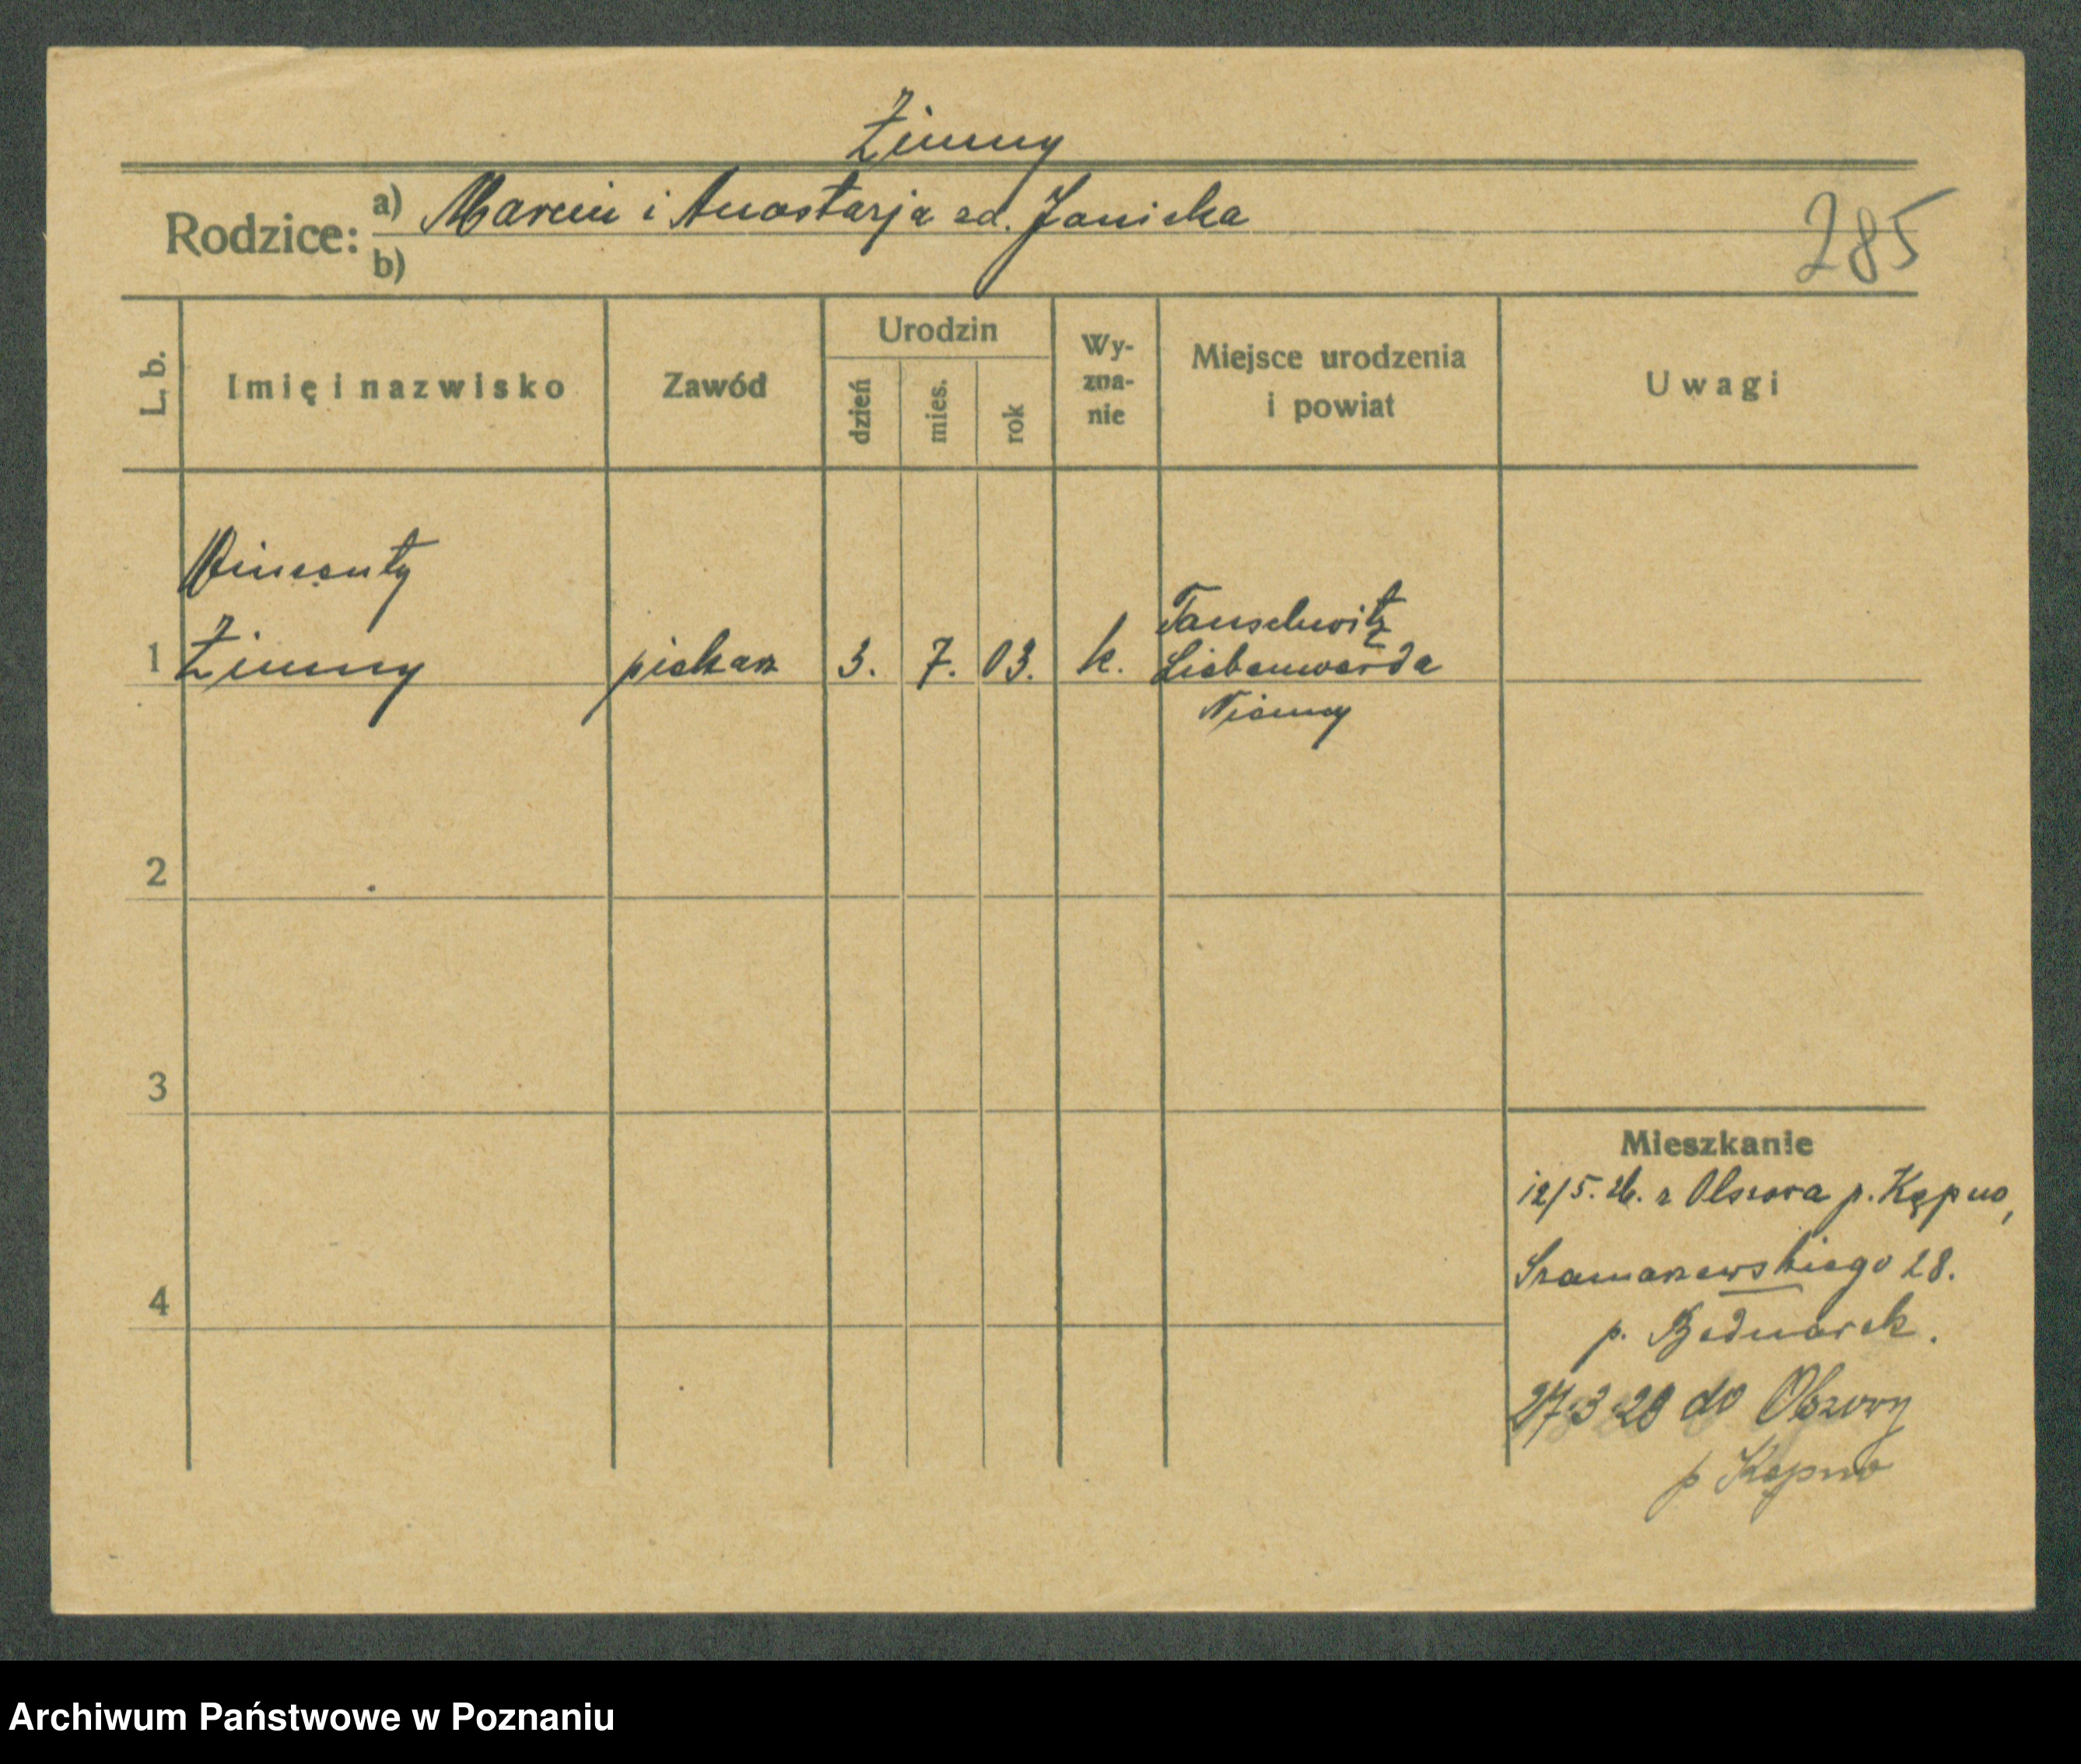 Zimny
Rodzice: a) Marcin i Anastazja zd. Janicka
285
b)
L. b.
Imię i nazwisko
Zawód
Urodzin
dzień
mies.
rok
Wy-
zna-
nie
Miejsce urodzenia
i powiat
Uwagi
Wincenty
1 Zimny piekarz 3. 7. 03. k.
Tauschwitz
Liebenwerda
Niemcy
2
3
4
Mieszkanie
12/5. 26. z Olszowa p. Kępno,
Szamarzewskiego 28.
p. Bednarek.
27.3.28 do Olszowy
p Kępno
Archiwum Państwowe w Poznaniu